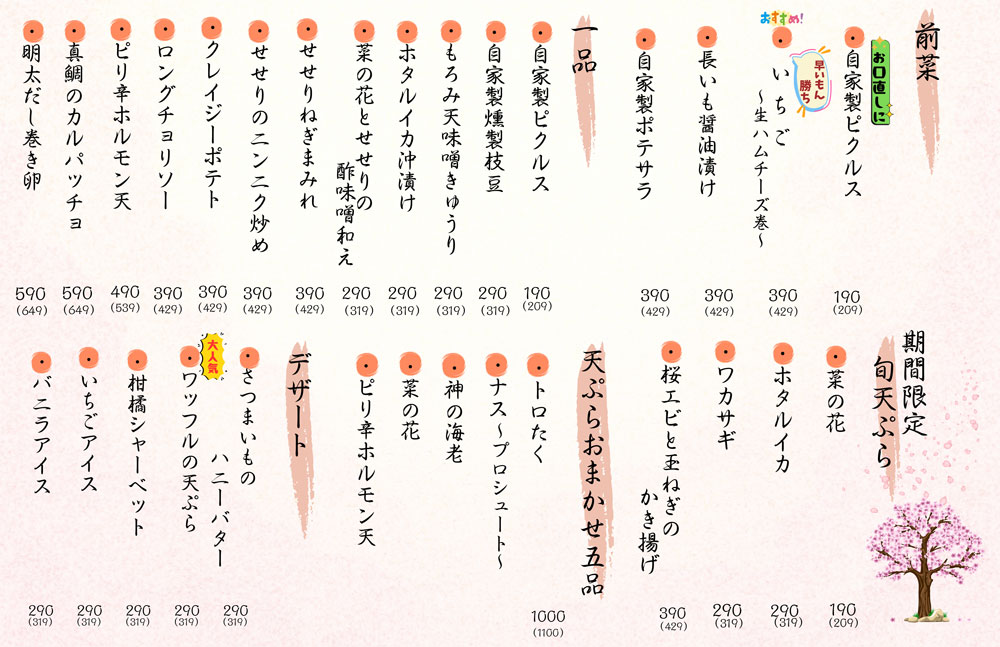 前菜
お口直しに
自家製ピクルス
190
(209)
おすすめ!
早いもん
勝ち
いちご
～生ハムチーズ巻～
390
(429)
長いも醤油漬け
390
(429)
自家製ポテサラ
390
(429)
一品
自家製ピクルス
190
(209)
自家製燻製枝豆
290
(319)
もろみ天味噌きゅうり
290
(319)
ホタルイカ沖漬け
290
(319)
菜の花とせせりの
酢味噌和え
290
(319)
せせりねぎまみれ
390
(429)
せせりのニンニク炒め
390
(429)
クレイジーポテト
390
(429)
ロングチョリソー
390
(429)
ピリ辛ホルモン天
490
(539)
真鯛のカルパッチョ
590
(649)
明太だし巻き卵
590
(649)
期間限定
旬天ぷら
菜の花
190
(209)
ホタルイカ
290
(319)
ワカサギ
290
(319)
桜エビと玉ねぎの
かき揚げ
390
(429)
天ぷらおまかせ五品
1000
(1100)
トロたく
ナス～プロシュート～
神の海老
菜の花
ピリ辛ホルモン天
デザート
さつまいもの
ハニーバター
290
(319)
大人気
ワッフルの天ぷら
290
(319)
柑橘シャーベット
290
(319)
いちごアイス
290
(319)
バニラアイス
290
(319)